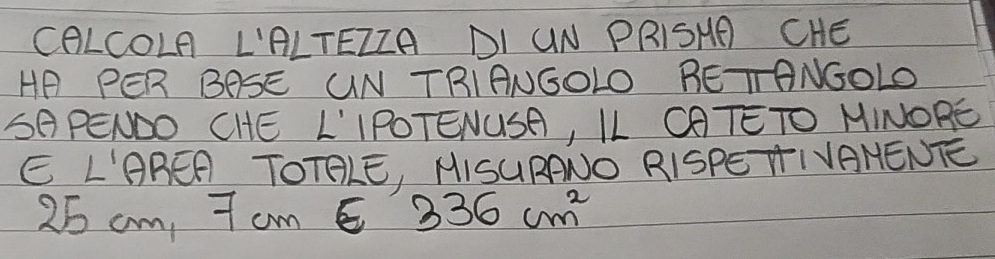 CALCOLA L'ALTEZZA DI UN PRISMA CHE
HA PER BASE UN TRIANGOLO RETTANGOLO
SAPENDO CHE L'IPOTENUSA, IL CATETO MINORE
E L'AREA TOTALE, MISURANO RISPETTIVAMENTE
25 cm, 7 cm E 336 cm²